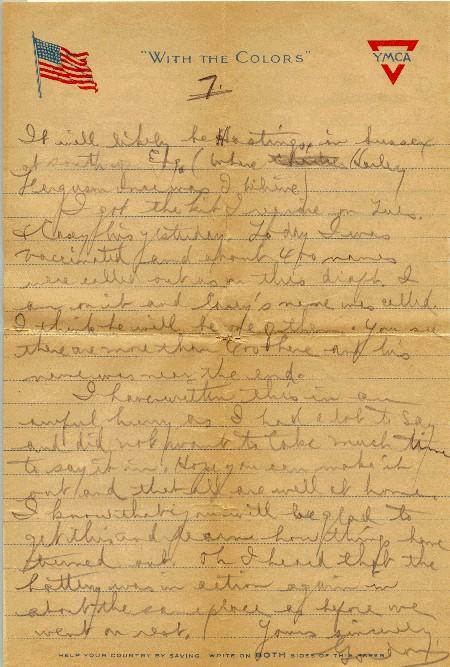 "WITH THE COLORS"
YMCA
7.
It will likely be Hastings, in Sussex
at south of Eng. (where Harley
Ferguson once was I believe)
I got the kit I was in on Tues.
& Casey his yesterday. To day I was
vaccinated and about 400 names
were called out as on this draft. I
am on it and Casey's name was called.
I think he will be one of them. You see
there are more than 400 here and his
name was near the end.
I have written this in an
awful hurry as I had a lot to say
and did not want to take much time
to say it in. Hope you can make it
out and that all are well at home.
I know that you will be glad to
get this and learn how things have
turned out. Oh I heard that the
battery was in action again in
about the same place as before we
went on rest. Yours sincerely,
HELP YOUR COUNTRY BY SAVING. WRITE ON BOTH SIDES OF THIS PAPER